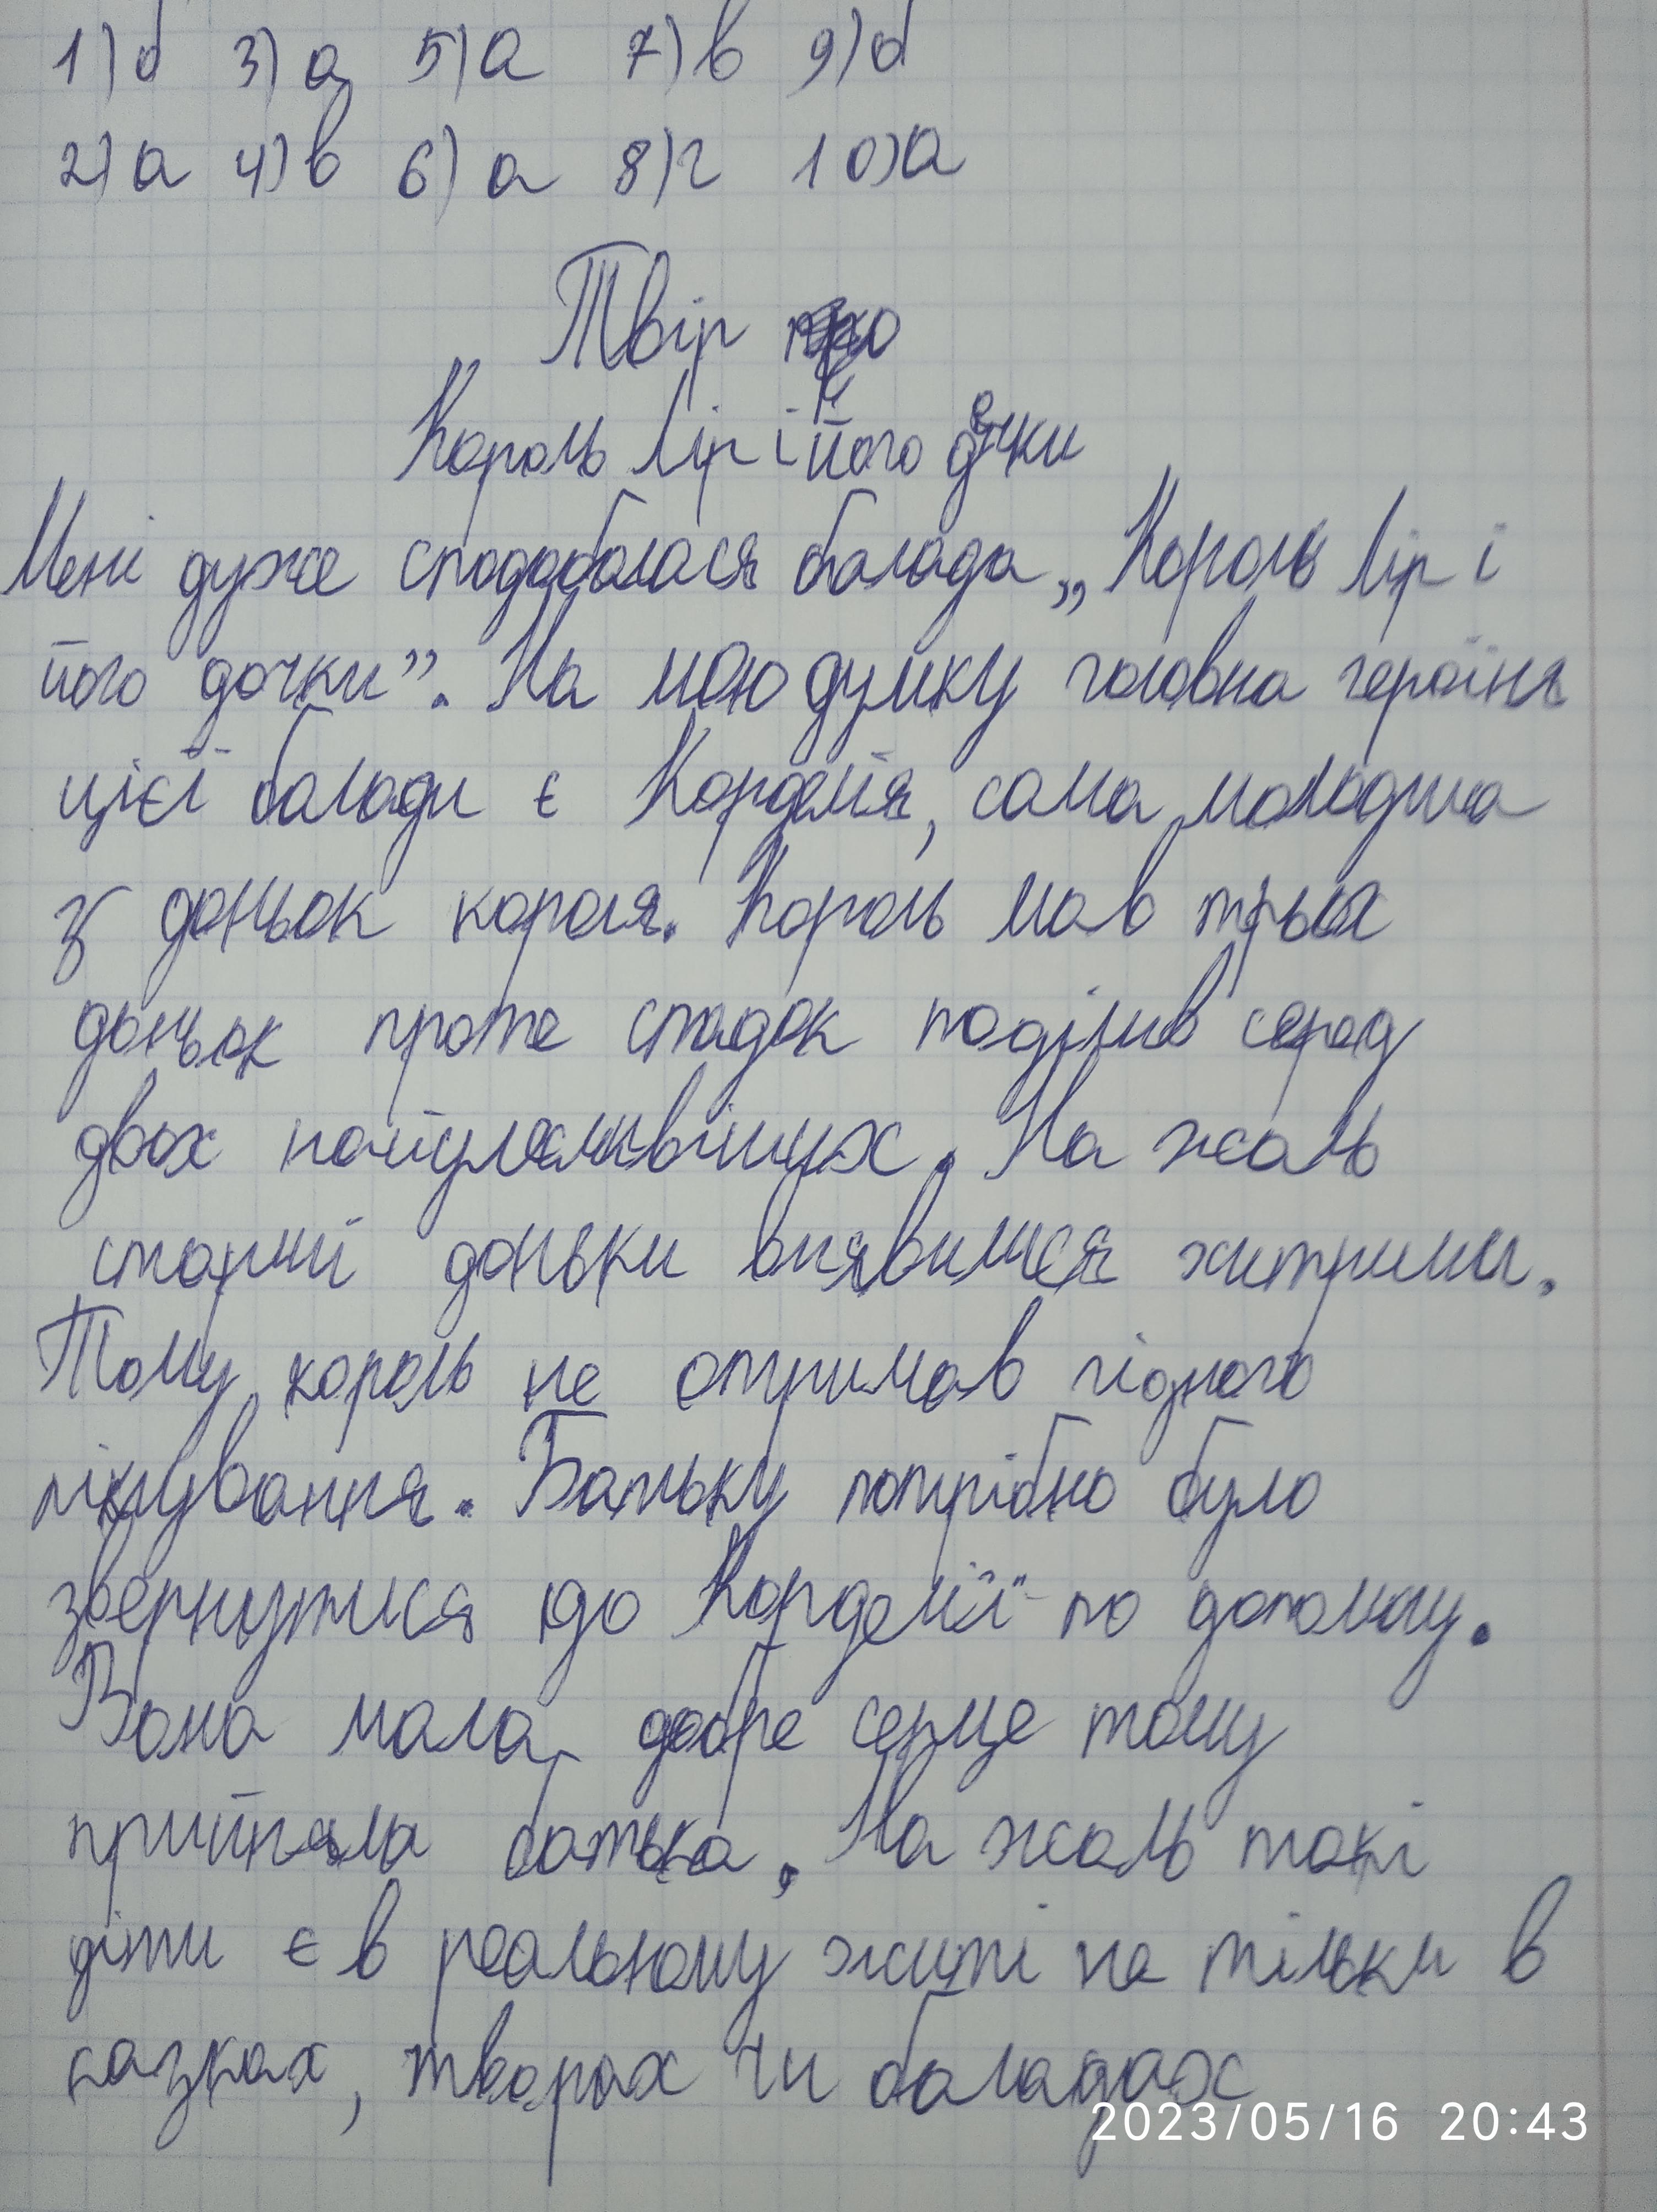 1) б 3) а 5) а 7) в 9) б
2) а 4) в 6) а 8) г 10) а
Твір
„ Король Лір і його дочки
Мені дуже сподобалася балада „Король Лір і
його дочки”. На мою думку головна героїня
цієї балади є Корделія, сама молодша
з доньок короля. Король мав трьох
доньок проте спадок поділив серед
двох найулесливіших. На жаль
старші доньки виявилися хитрими.
Тому король не отримав гідного
піклування. Батьку потрібно було
звернутися до Корделії по допомогу.
Вона мала добре серце тому
прийняла батька. На жаль такі
діти є в реальному житі не тільки в
казках, творах чи баладах
2023/05/16 20:43